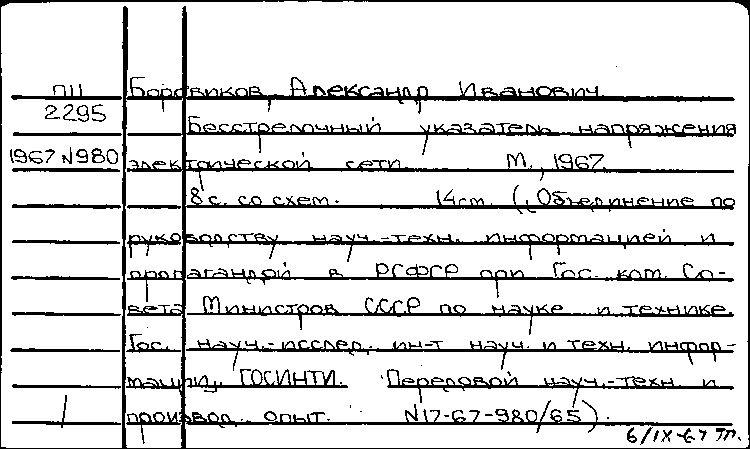 П11 Боровиков, Александр Иванович.
2295
Бесстрелочный указатель напряжения
1967 N980 электрической сети. М., 1967.
8 с. со схем. 14 см. (Объединение по
руководству науч.-техн. информацией и
пропагандой в РСФСР при Гос. ком. Со-
вета Министров СССР по науке и технике.
Гос. науч.-исслед. ин-т науч. и техн. инфор-
мации, ГОСИНТИ. Передовой науч.-техн. и
производ. опыт. N17-67-980/65).
6/IX-67